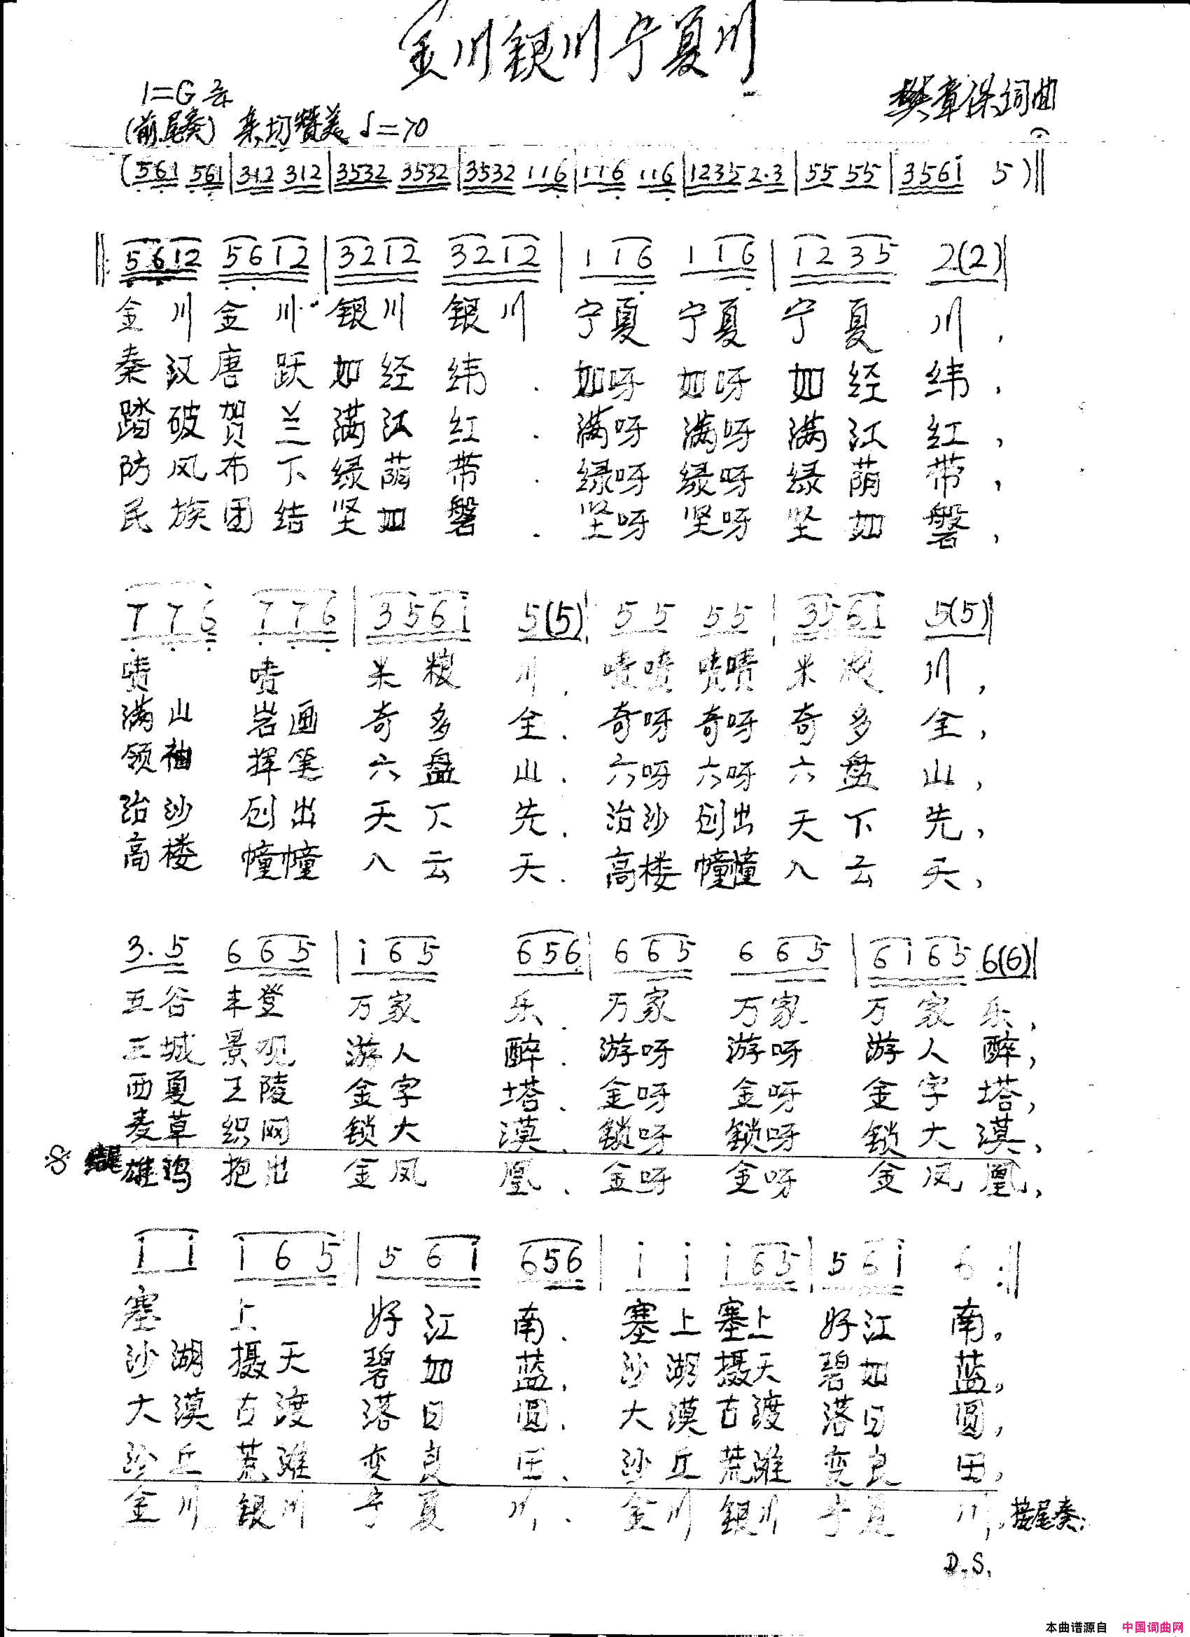 金川银川宁夏川
1=G 2/4
樊章保词曲
(前.尾奏) 亲切赞美 ♩=70
(561 561|312 312|3532 3532|3532 116|116 116|1235 2·3|55 55|3561 5)‖
‖:5612 5612|3212 3212|116 116|1235 2(2)|
金川金川 银川 银川 宁夏 宁夏 宁夏 川,
秦汉唐跃如经纬. 如呀 如呀 如经纬,
踏破贺兰满江红. 满呀 满呀 满江红,
防风布下绿荫带. 绿呀 绿呀 绿荫带,
民族团结坚如磐. 坚呀 坚呀 坚如磐,
776 776|3561 5(5)|55 55|3561 5(5)|
啧 啧 米粮川. 啧啧 啧啧 米粮川,
满山 岩画 奇多全. 奇呀 奇呀 奇多全,
领袖 挥笔 六盘山. 六呀 六呀 六盘山,
治沙 创出 天下先. 治沙 创出 天下先,
高楼 幢幢 入云天. 高楼 幢幢 入云天,
3·5 665|i65 656|665 665|6i65 6(6)|
五谷 丰登 万家 乐. 万家 万家 万家乐,
王城 景观 游人 醉. 游呀 游呀 游人醉,
西夏 王陵 金字 塔. 金呀 金呀 金字塔,
麦草 织网 锁大 漠. 锁呀 锁呀 锁大漠,
结尾 雄鸡 抱出 金凤 凰. 金呀 金呀 金凤凰,
ii i65|56i 656|ii i65|56i 6:‖
塞 上 好江 南. 塞上 塞上 好江 南。
沙湖 摄天 碧如 蓝. 沙湖 摄天 碧如 蓝,
大漠 古渡 落日 圆. 大漠 古渡 落日 圆,
沙丘 荒滩 变良 田. 沙丘 荒滩 变良 田,
金川 银川 宁夏 川. 金川 银川 宁夏 川, 接尾奏:
D.S.
本曲谱源自 中国词曲网